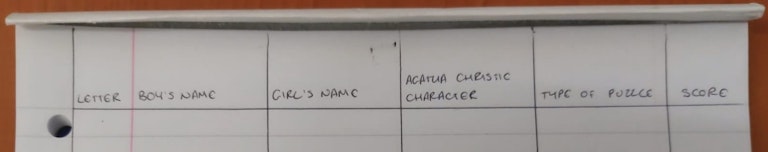 LETTER BOY'S NAME GIRL'S NAME AGATHA CHRISTIE CHARACTER TYPE OF PUZZLE SCORE